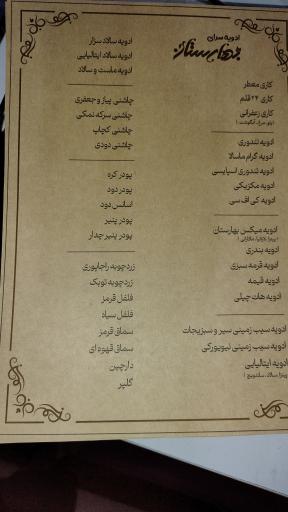 ادویه سرای
بهارستان
کاری معطر
کاری ۲۴ قلم
کاری زعفرانی
ادویه تندوری
ادویه گرام ماسالا
ادویه تندوری اسپایسی
ادویه مکزیکی
ادویه کی اف سی
ادویه میکس بهارستان
ادویه بندری
ادویه قرمه سبزی
ادویه قیمه
ادویه هات چیلی
ادویه سیب زمینی سیر و سبزیجات
ادویه سیب زمینی نیویورکی
ادویه ایتالیایی
(پیتزا، سالاد، ساندویچ)
ادویه سالاد سزار
ادویه سالاد ایتالیایی
ادویه ماست و سالاد
چاشنی پیاز و جعفری
چاشنی سرکه نمکی
چاشنی کچاپ
چاشنی دودی
پودر کره
پودر دود
اسانس دود
پودر پنیر
پودر پنیر چدار
زردچوبه راجاپوری
زردچوبه توپک
فلفل قرمز
فلفل سیاه
سماق قرمز
سماق قهوه ای
دارچین
گلپر